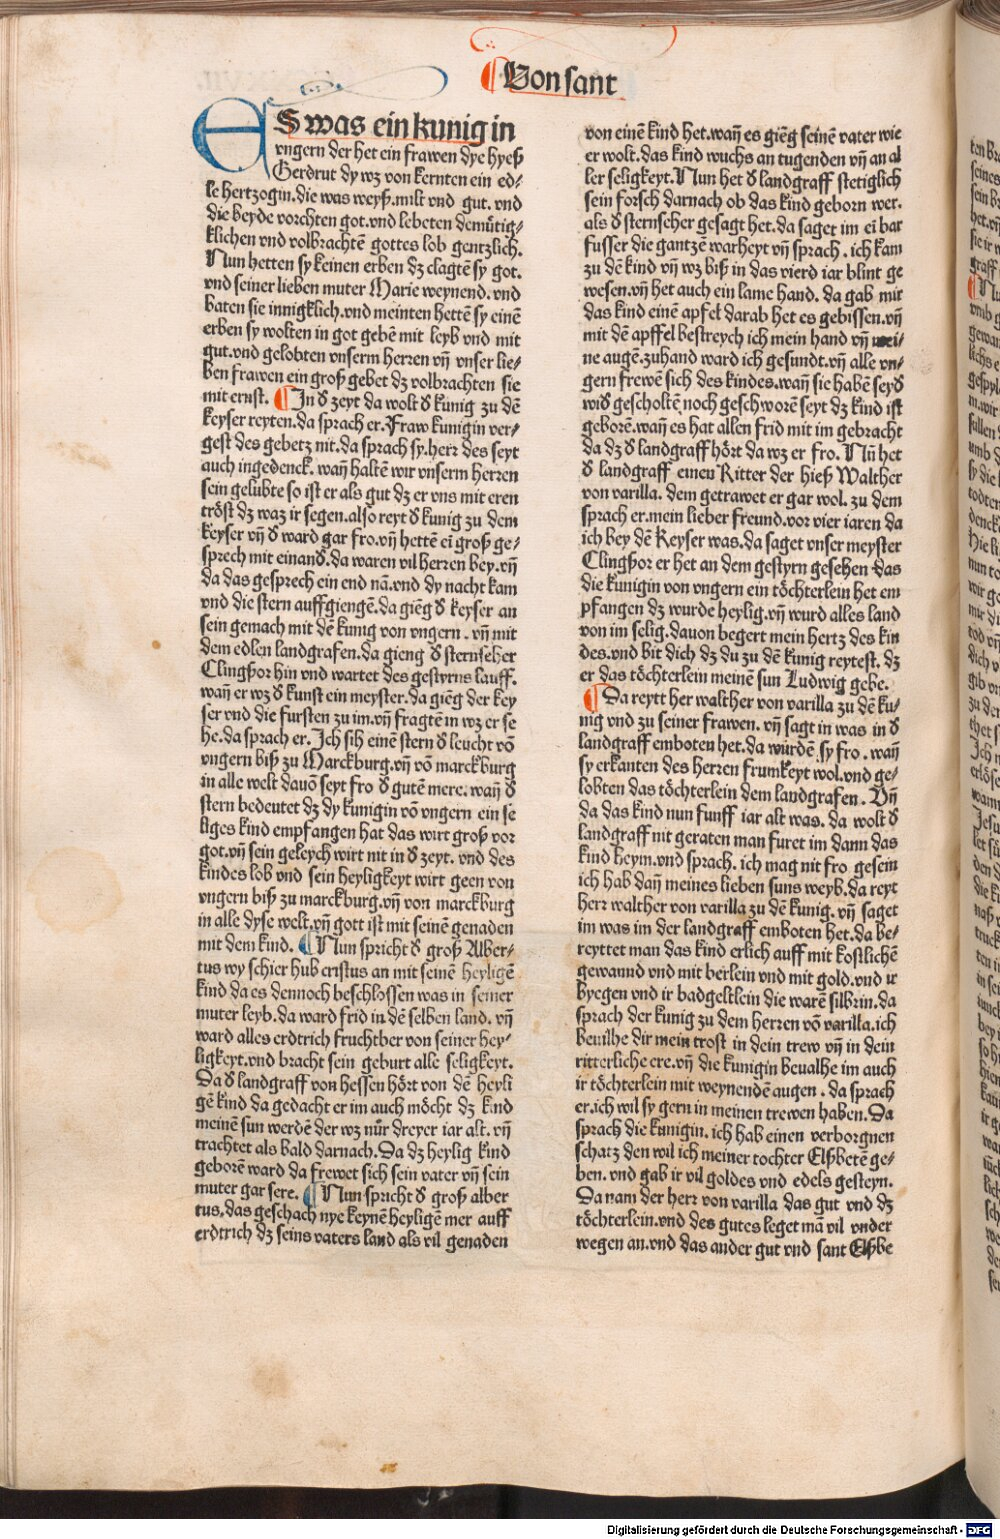 Von sant
ES was ein kunig in
vngern der het ein frawen dye hyeß
Gerdrut dy wz von kernten ein ed⸗
le hertzogin.die was weyß.milt vnd gut. vnd
die beyde vorchten got.vnd lebeten demuͤtig⸗
klichen vnd volbrachtē gottes lob gentzlich.
Nun hetten sy keinen erben dz clagtē sy got.
vnd seiner lieben muter Marie weynend. vnd
baten sie innigklich.vnd meinten hettē sy einē
erben sy wolten in got gebē mit leyb vnd mit
gut.vnd gelobten vnserm herren vn̄ vnser lie⸗
ben frawen ein groß gebet dz volbrachten sie
mit ernst. ¶ In d zeyt da wolt d kunig zu dē
keyser reyten.da sprach er. Fraw kunigin ver⸗
gest des gebetz nit.da sprach sy.herr des seyt
auch ingedenck. wan̄ haltē wir vnserm herren
sein geluͤbte so ist er als gut dz er vns mit eren
troͤst dz waz ir segen.also reyt d kunig zu dem
keyser vn̄ d ward gar fro.vn̄ hettē ei groß ge⸗
sprech mit einand.da waren vil herren bey.vn̄
da das gesprech ein end nā.vnd dy nacht kam
vnd die stern auffgiengē.da giēg d keyser an
sein gemach mit dē kunig von vngern . vn̄ mit
dem edlen landgrafen.da gieng d sternseher
Clingßor hin vnd wartet des gestyrns lauff.
wan̄ er wz d kunst ein meyster.da giēg der key
ser vnd die fursten zu im.vn̄ fragtē in wz er se
he.da sprach er. Ich sih einē stern d leucht vō
vngern biß zu Marckburg.vn̄ vō marckburg
in alle welt dauō seyt fro d gutē mere. wan̄ d
stern bedeutet dz dy kunigin vō vngern ein se
liges kind empfangen hat das wirt groß vor
got.vn̄ sein geleych wirt nit in d zeyt. vnd des
kindes lob vnd sein heyligkeyt wirt geen von
vngern biß zu marckburg.vn̄ von marckburg
in alle dyse welt.vn̄ gott ist mit seinē genaden
mit dem kind. ¶ Nun spricht d groß Alber⸗
tus wy schier hub cristus an mit seinē heyligē
kind da es dennoch beschlossen was in seiner
muter leyb.da ward frid in dē selben land. vn̄
ward alles erdtrich fruchtber von seiner hey⸗
ligkeyt.vnd bracht sein geburt alle seligkeyt.
Da d landgraff von hessen hoͤrt von dē heyli
gē kind da gedacht er im auch moͤcht dz kind
meinē sun werdē der wz nuͤr dreyer iar alt. vn̄
trachtet als bald darnach. Da dz heylig kind
geborē ward da frewet sich sein vater vn̄ sein
muter gar sere. ¶ Nun spricht d groß alber
tus.das geschach nye keynē heyligē mer auff
erdtrich dz seins vaters land als vil genaden
von einē kind het.wan̄ es giēg seinē vater wie
er wolt.das kind wuchs an tugenden vn̄ an al
ler seligkeyt. Nun het d landgraff stetiglich
sein forsch darnach ob das kind geborn wer.
als d sternseher gesagt het.da saget im ei bar
fusser die gantzē warheyt vn̄ sprach . ich kam
zu dē kind vn̄ wz biß in das vierd iar blint ge
wesen.vn̄ het auch ein lame hand. da gab mir
das kind einē apfel darab het es gebissen.vn̄
mit dē apffel bestreych ich mein hand vn̄ mei⸗
ne augē.zuhand ward ich gesundt.vn̄ alle vn⸗
gern frewē sich des kindes.wan̄ sie habē seyd
wid gescholtē noch geschworē seyt dz kind ist
geborē.wan̄ es hat allen frid mit im gebracht
da dz d landgraff hoͤrt da wz er fro. Nū het
d landgraff einen Ritter der hieß Walther
von varilla. dem getrawet er gar wol. zu dem
sprach er.mein lieber freund.vor vier iaren da
ich bey dē Keyser was.da saget vnser meyster
Clingßor er het an dem gestyrn gesehen das
die kunigin von vngern ein toͤchterlein het em
pfangen dz wurde heylig.vn̄ wurd alles land
von im selig.dauon begert mein hertz des kin
des.vnd bit dich dz du zu dē kunig reytest. dz
er das toͤchterlein meinē sun Ludwig gebe.
¶ Da reytt her walther von varilla zu dē ku⸗
nig vnd zu seiner frawen. vn̄ sagt in was in d
landgraff emboten het.da wurdē sy fro . wan̄
sy erkanten des herren frumkeyt wol.vnd ge⸗
lobten das toͤchterlein dem landgrafen . Vn̄
da das kind nun funff iar alt was. da wolt d
landgraff nit geraten man furet im dann das
kind heym.vnd sprach. ich mag nit fro gesein
ich hab dan̄ meines lieben suns weyb.da reyt
herr walther von varilla zu dē kunig. vn̄ saget
im was im der landgraff emboten het.da be⸗
reyttet man das kind erlich auff mit kostlichē
gewannd vnd mit berlein vnd mit gold.vnd ir
byegen vnd ir badgeltlein die warē silbrin.da
sprach der kunig zu dem herren vō varilla.ich
beuilhe dir mein trost in dein trew vn̄ in dein
ritterliche ere.vn̄ die kunigin beualhe im auch
ir toͤchterlein mit weynendē augen . da sprach
er.ich wil sy gern in meinen trewen haben. Da
sprach die kunigin. ich hab einen verborgnen
schatz den wil ich meiner tochter Elßbetē ge⸗
ben. vnd gab ir vil goldes vnd edels gesteyn.
Da nam der herr von varilla das gut vnd dz
toͤchterlein.vnd des gutes leget mā vil vnder
wegen an.vnd das ander gut vnd sant Elßbe
Digitalisierung gefördert durch die Deutsche Forschungsgemeinschaft - DFG